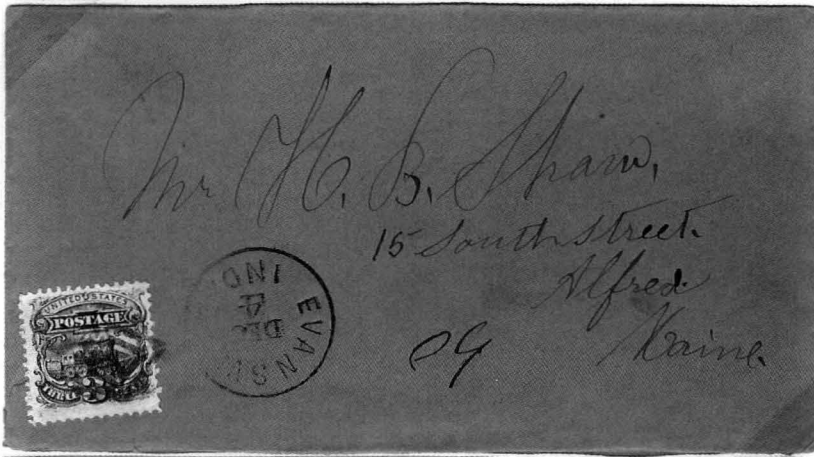 Mr H. B. Shaw,
15 South Street.
Alfred
Maine.
EVANS
IND
DEC
4
UNITED STATES
POSTAGE
THREE
3